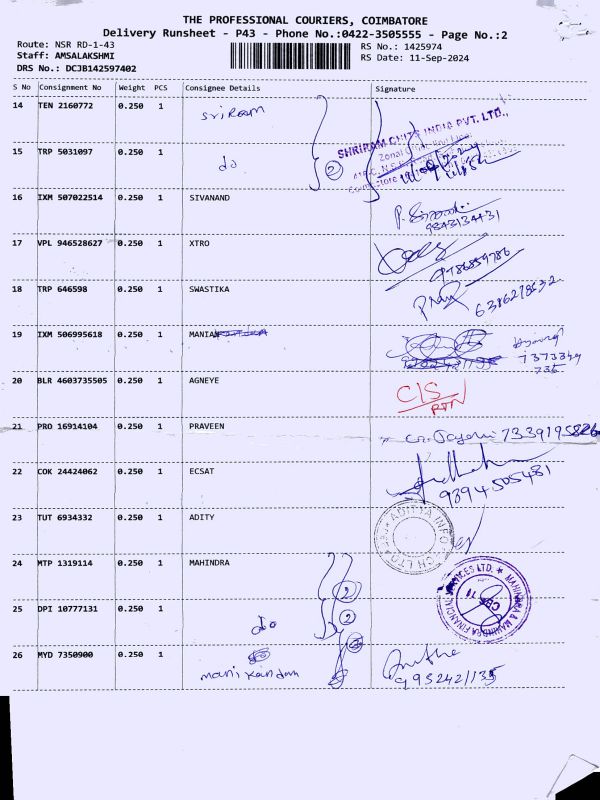 THE PROFESSIONAL COURIERS, COIMBATORE
Delivery Runsheet - P43 - Phone No.:0422-3505555 - Page No.:2
Route: NSR RD-1-43
RS No.: 1425974
Staff: AMSALAKSHMI
RS Date: 11-Sep-2024
DRS No.: DCJB142597402
S No Consignment No Weight PCS Consignee Details Signature
14 TEN 2160772 0.250 1 Sriram
SHRIRAM CHITS INDIA PVT. LTD.,
15 TRP 5031097 0.250 1 do 2
16 IXM 507022514 0.250 1 SIVANAND
9843134431
17 VPL 946528627 0.250 1 XTRO
9786859786
18 TRP 646598 0.250 1 SWASTIKA
6386278532
19 IXM 506995618 0.250 1 MANIAN
7373349
735
20 BLR 4603735505 0.250 1 AGNEYE C/S
RTN
21 PRO 16914104 0.250 1 PRAVEEN 7339195826
22 COK 24424062 0.250 1 ECSAT
9894505481
23 TUT 6934332 0.250 1 ADITY ADITYA INFOTECH LTD
24 MTP 1319114 0.250 1 MAHINDRA 2
MAHINDRA & MAHINDRA FINANCIAL SERVICES LTD. CBE 11
25 DPI 10777131 0.250 1 do 2
26 MYD 7350900 0.250 1 manikandan
9952421135